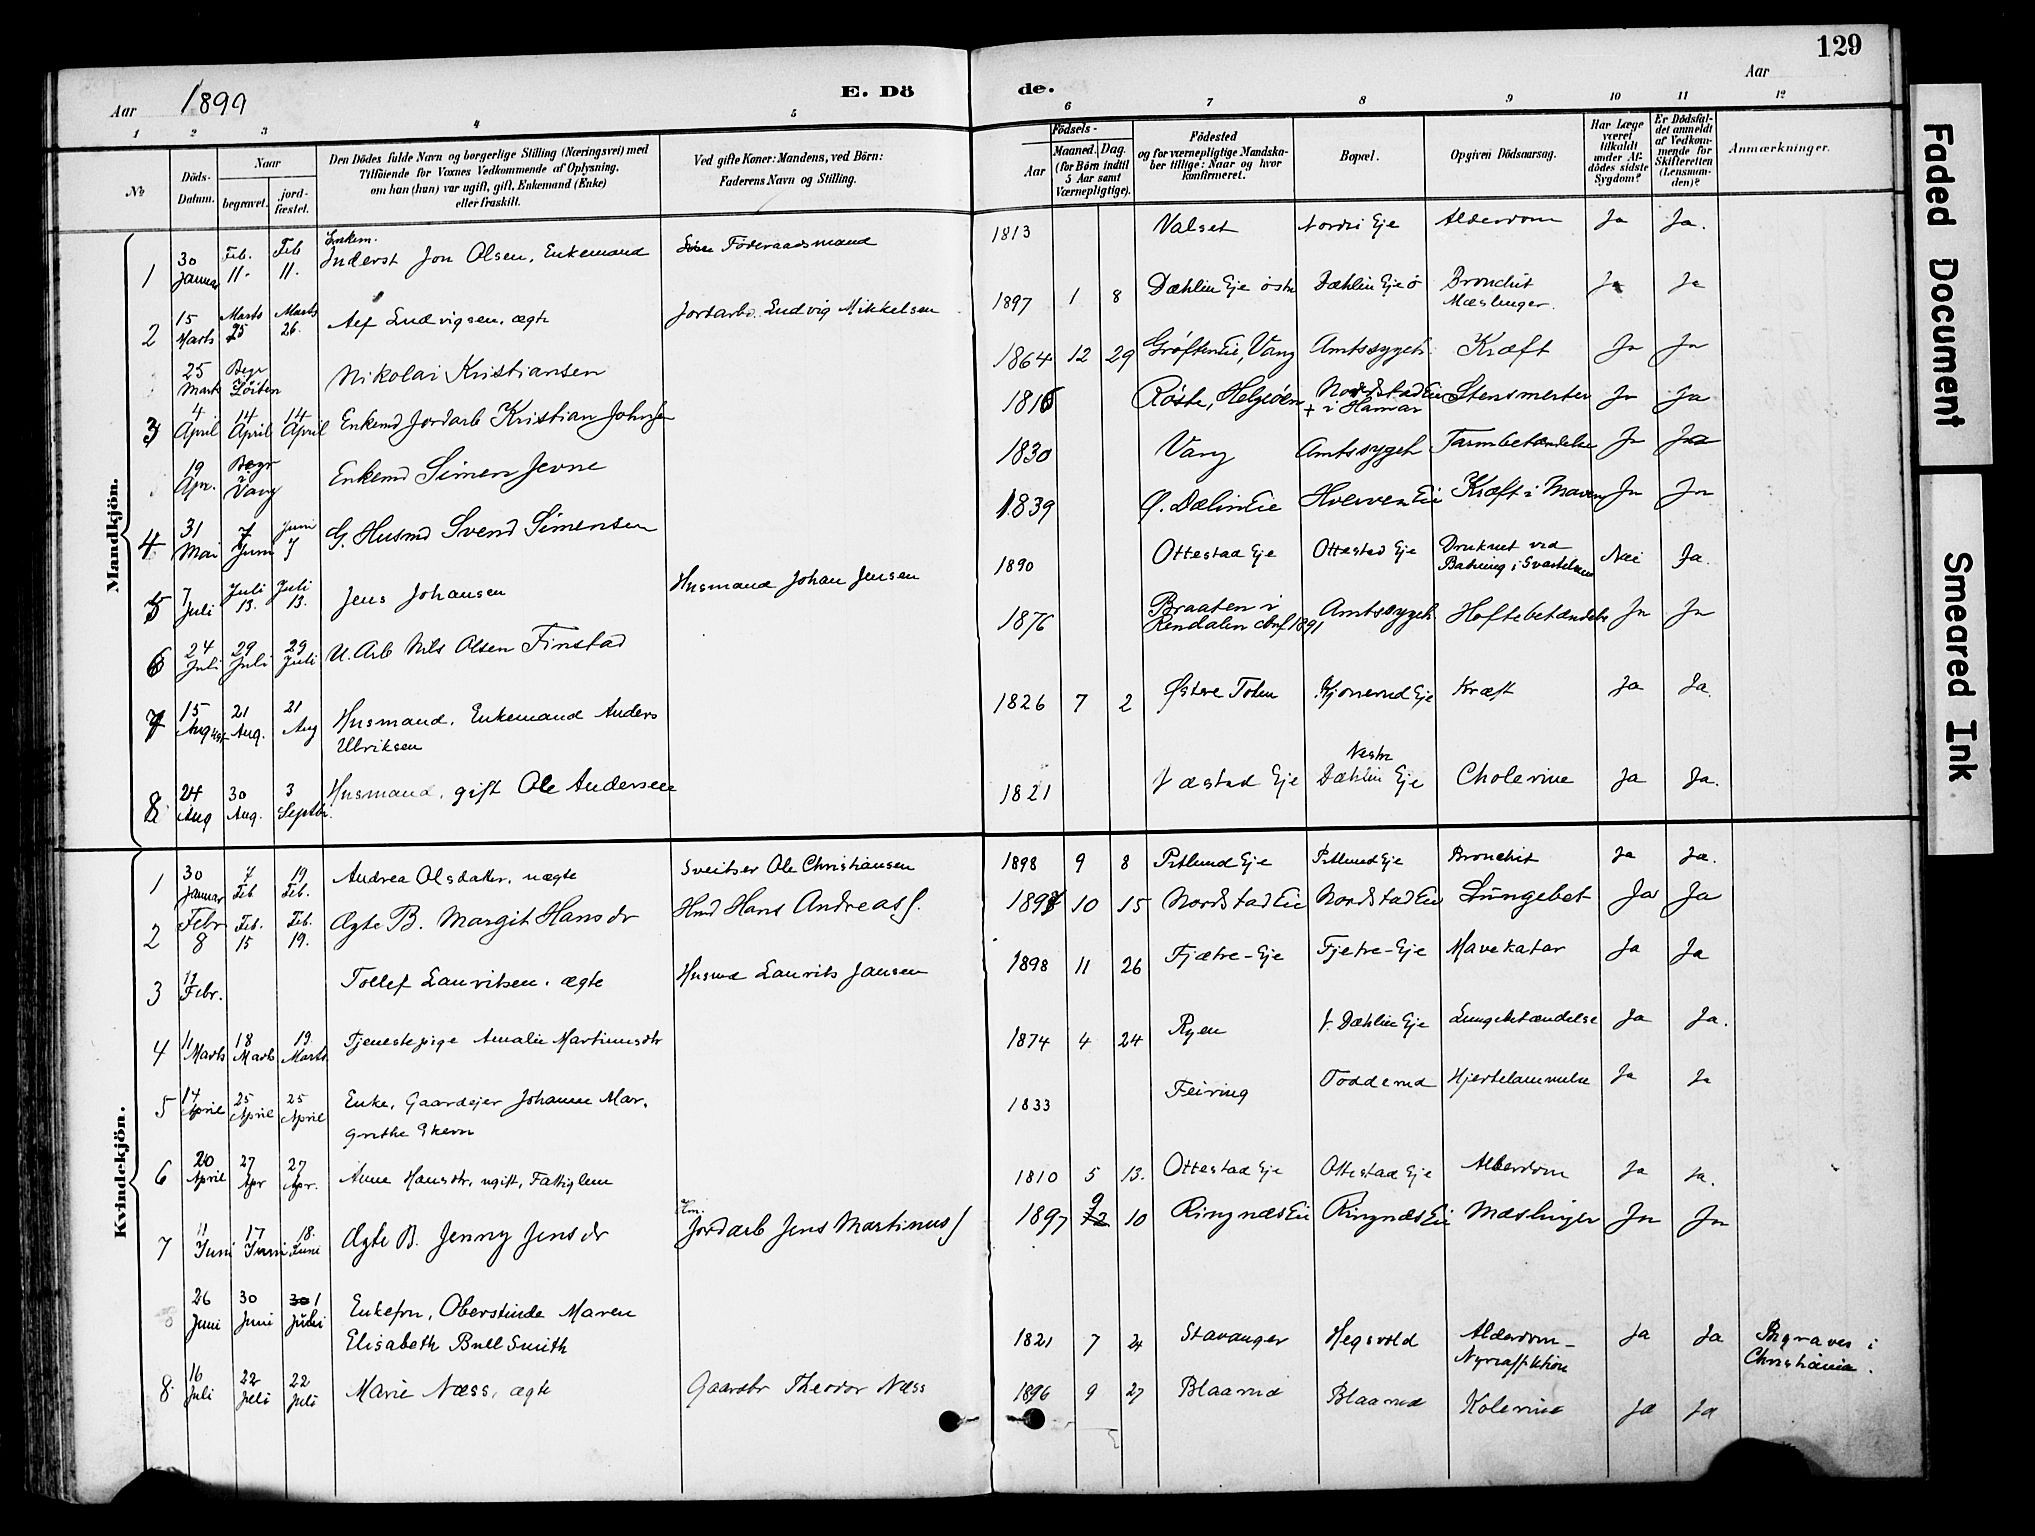 129
Aar 1899
E. Dö
de.
Aar
1 2 3 4 5 6 7 8 9 10 11 12
No
Döds-Datum.
Naar
begravet.
jord-fæstet.
Den Dödes fulde Navn og borgerlige Stilling (Næringsvei) med
Tilföiende for Voxnes Vedkommende af Oplysning,
om han (hun) var ugift, gift, Enkemand (Enke)
eller fraskilt.
Ved gifte Koner: Mandens, ved Börn:
Faderens Navn og Stilling.
Födsels-
Aar
Maaned. Dag.
(for Börn indtil
5 Aar samt
Værnepligtige).
Födested
og for værnepligtige Mandska-
ber tillige: Naar og hvor
konfirmeret.
Bopæl.
Opgiven Dödsaarsag.
Har Læge
været
tilkaldt
under Af-
dödes sidste
Sygdom?
Er Dödsfal-
det anmeldt
af Vedkom-
mende for
Skifteretten
(Lensman-
den)?
Anmærkninger.
Mandkjön.
1 30 Januar Feb. 11. Feb 11. Enkem. Inderst Jon Olsen, Enkemand Föderaadsmand 1813 Valset Nordre Eje Alderdom Ja Ja.
2 15 Marts Marts 25 Marts 26. Alf Ludvigsen, ægte Jordarb. Ludvig Mikkelsen 1897 1 8 Dæhlin Eje östre Dæhlin Eje ö Bronchit Mæslinger. Ja Ja
25 Marts Begr Löiten Nikolai Kristiansen 1864 12 29 Gröften Eie, Vang Amtssygeh. Kræft Ja Ja
3 4 April 14 April 14 April Enkemd Jordarb Kristian Johnsen 1816 Röste, Helgeöen Nordstad Eie + i Hamar Stensmerter Ja Ja
19 Apr. Begr i Vang Enkemd Simen Jevne 1830 Vang Amtssygeh Tarmbetændelse Ja Ja
4 31 Mai 7 Juni Juni 7 G. Husmd Svend Simensen 1839 Ö. Dælin Eie Hverven Eie Kræft i Maven Ja Ja
5 7 Juli Juli 13. Juli 13. Jens Johansen Husmand Johan Jensen 1890 Ottestad Eje Ottestad Eje Druknet ved Badning i Svartelven Nei Ja.
6 24 Juli 29 Juli 29 Juli U. Arb Nils Olsen Finstad 1876 Braaten i Rendalen conf. 1891 Amtssygeh. Hoftebetændelse Ja Ja
7 15 August 21 Aug. 21 Aug Husmand, Enkemand Anders Ulriksen 1826 7 2 Östre Toten Kjonerud Eje Kræft Ja Ja.
8 24 Aug 30 Aug. 3 Septbr. Husmand, gift Ole Andersen 1821 V æstad Eje Vestre Dæhlin Eje Cholerine Ja Ja.
Kvindekjön.
1 30 Januar 7 Feb 19 Feb. Andrea Olsdatter, uægte Sveitser Ole Christiansen 1898 9 8 Pitlund Eje Pitlund Eje Bronchit Ja Ja.
2 Febr 8 Feb. 15 Feb. 19. Ægte B. Margit Hansdr Hmd Hans Andreasf. 1897 10 15 Nordstad Eie Nordstad Eie Lungebet Ja Ja
3 17 Febr. Tollef Lauritsen, ægte Husmd Laurits Jansen 1898 11 26 Fjætre-Eje Fjetre-Eje Mavekatar Ja Ja
4 11 Marts 18 Marts 19. Marts Tjenestepige Amalie Martinusdtr 1874 4 24 Ryen V. Dæhlin Eje Lungebetændelse Ja Ja.
5 14 April 25 April 25 April Enke, Gaardejer Johanne Mar-
grethe Skern 1833 Feiring Toddernd Hjertelammelse Ja Ja
6 20 April 27 Apr 27 Apr. Anne Hansdtr, ugift, Fattiglem 1810 5 13. Ottestad Eje Ottestad Eje Alderdom Ja Ja.
7 11 Juni 17 Juni 18. Juni Ægte B. Jenny Jensdr Em. Jordarb Jens Martinusf 1897 9 10 Ringnæs Eie Ringnæs Eie Mæslinger Ja Ja
26 Juni 30 Juni 30 1 Juli Enkefru, Oberstinde Maren
Elisabeth Bull Smith 1821 7 24 Stavanger Hegsvold Alderdom - Nyreaffektion Ja Ja Begraves i Christiania.
8. 16 Juli 22 Juli 22 Juli Marie Næss, ægte Gaardbr Theodor Næss 1896 9 27 Blaarud Blaarud Kolerine Ja Ja
Faded Document
Smeared Ink